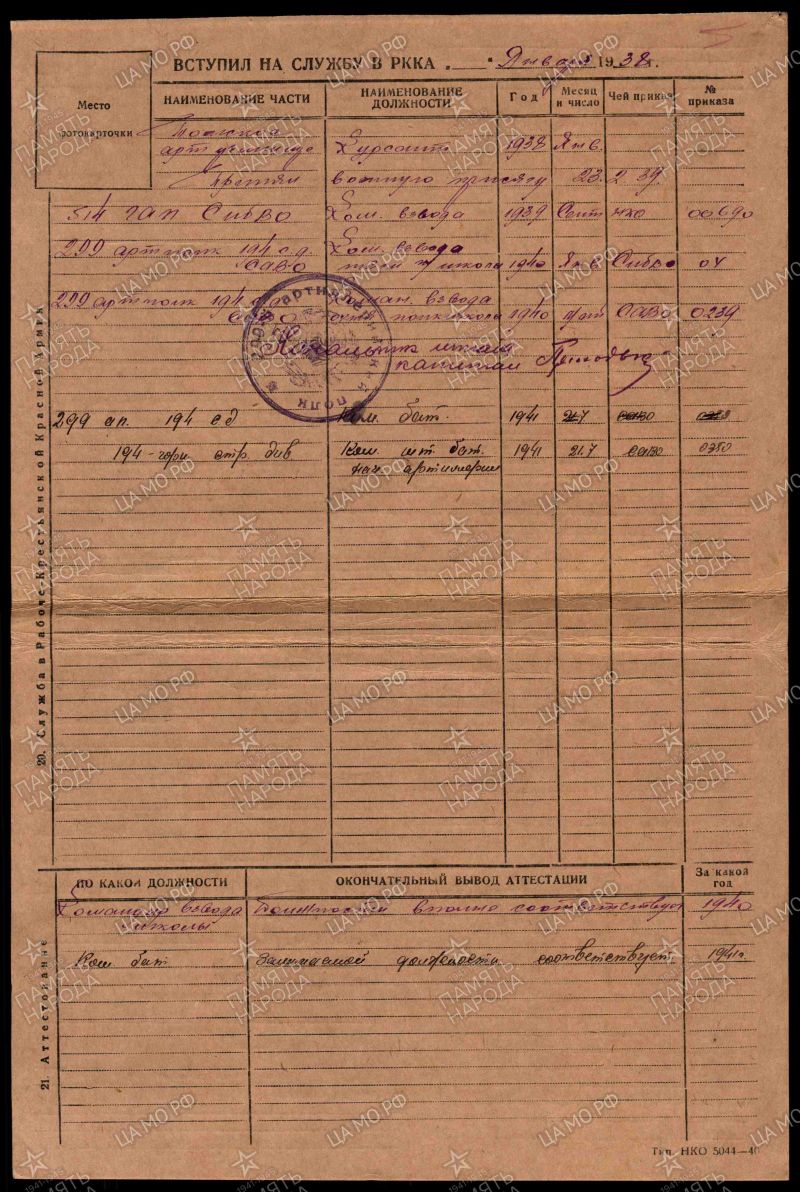 ВСТУПИЛ НА СЛУЖБУ В РККА „ “ Января 1938 г.
Место фотокарточки
НАИМЕНОВАНИЕ ЧАСТИ НАИМЕНОВАНИЕ ДОЛЖНОСТИ Год Месяц и число Чей приказ № приказа
Томское
арт училище Курсант 1938 Янв.
принял военную присягу 23.2 39.
514 гап СибВО Ком. взвода 1939 Сент НКО 00690
299 артполк 194 с.д. Ком. взвода
школ 1940 Янв. СибВО 04
299 артполк 194 Коман. взвода
САВО полк школа 1940 САВО 0239
Начальник штаба
капитан
299 ап. 194 сд Ком. бат. 1941 21.7 САВО
194 - горн стр. див Ком. шт. бат. 1941 21.7 САВО 0350
нач. артиллерии
20. Служба в Рабоче-Крестьянской Красной Армии
ПО КАКОЙ ДОЛЖНОСТИ ОКОНЧАТЕЛЬНЫЙ ВЫВОД АТТЕСТАЦИИ За какой год
Командир взвода Должности вполне соответствует 1940
школы
Ком бат Занимаемой должности соответствует. 1941г.
21. Аттестование
Тип. НКО 5044—40
ЦА МО РФ
ПАМЯТЬ НАРОДА